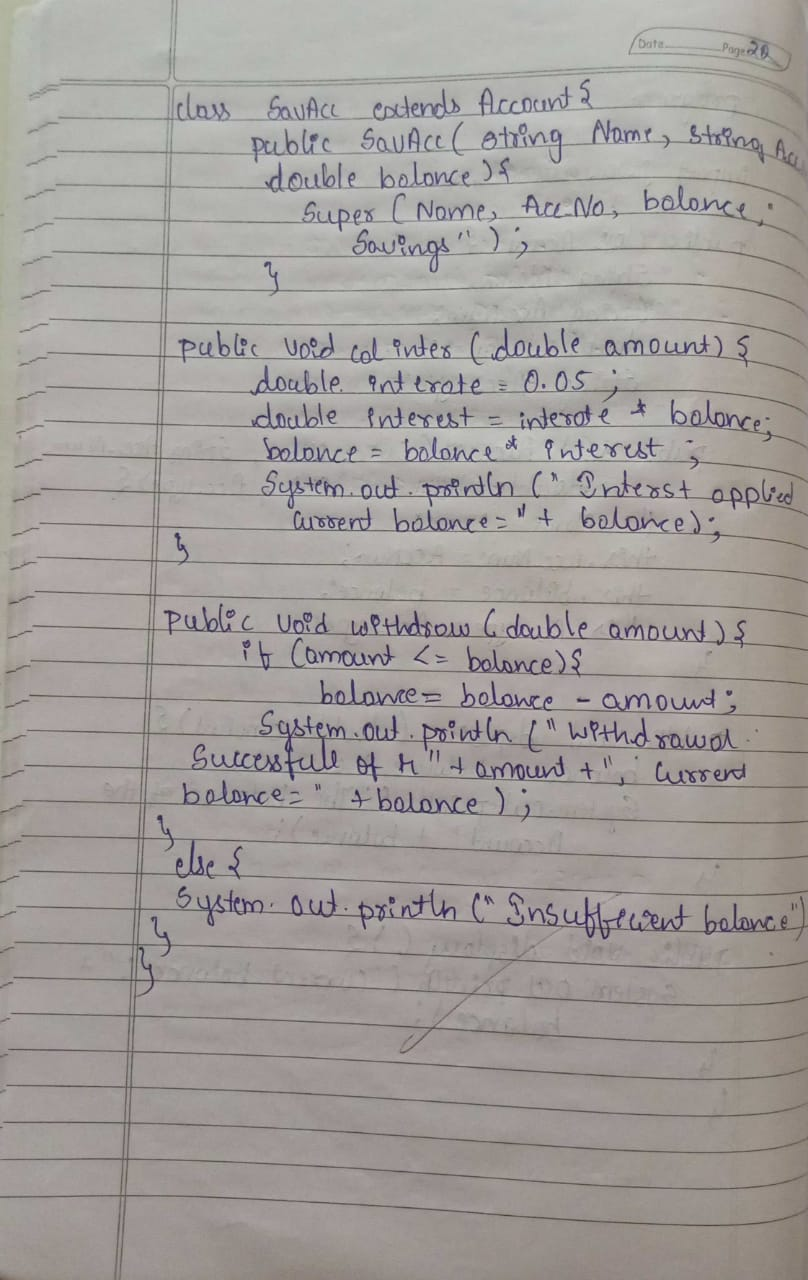 Date Page 20
class SavAcc extends Account {
public SavAcc ( string Name, string Acc
double balance ) {
Super ( Name, Acc.No, balance,
Savings" ) ;
}
public void cal inter ( double amount ) {
double interate = 0.05 ;
double interest = interate * balance;
balance = balance * interest ;
System.out.println (" Interst applied
Current balance=" + balance);
}
public void withdraw ( double amount ) {
if (amount <= balance) {
balance = balance - amount;
System.out.println (" withdrawal
Successfull of r" + amount + ", Current
balance=" + balance ) ;
}
else {
System.out.println (" Insufficient balance")
}
}